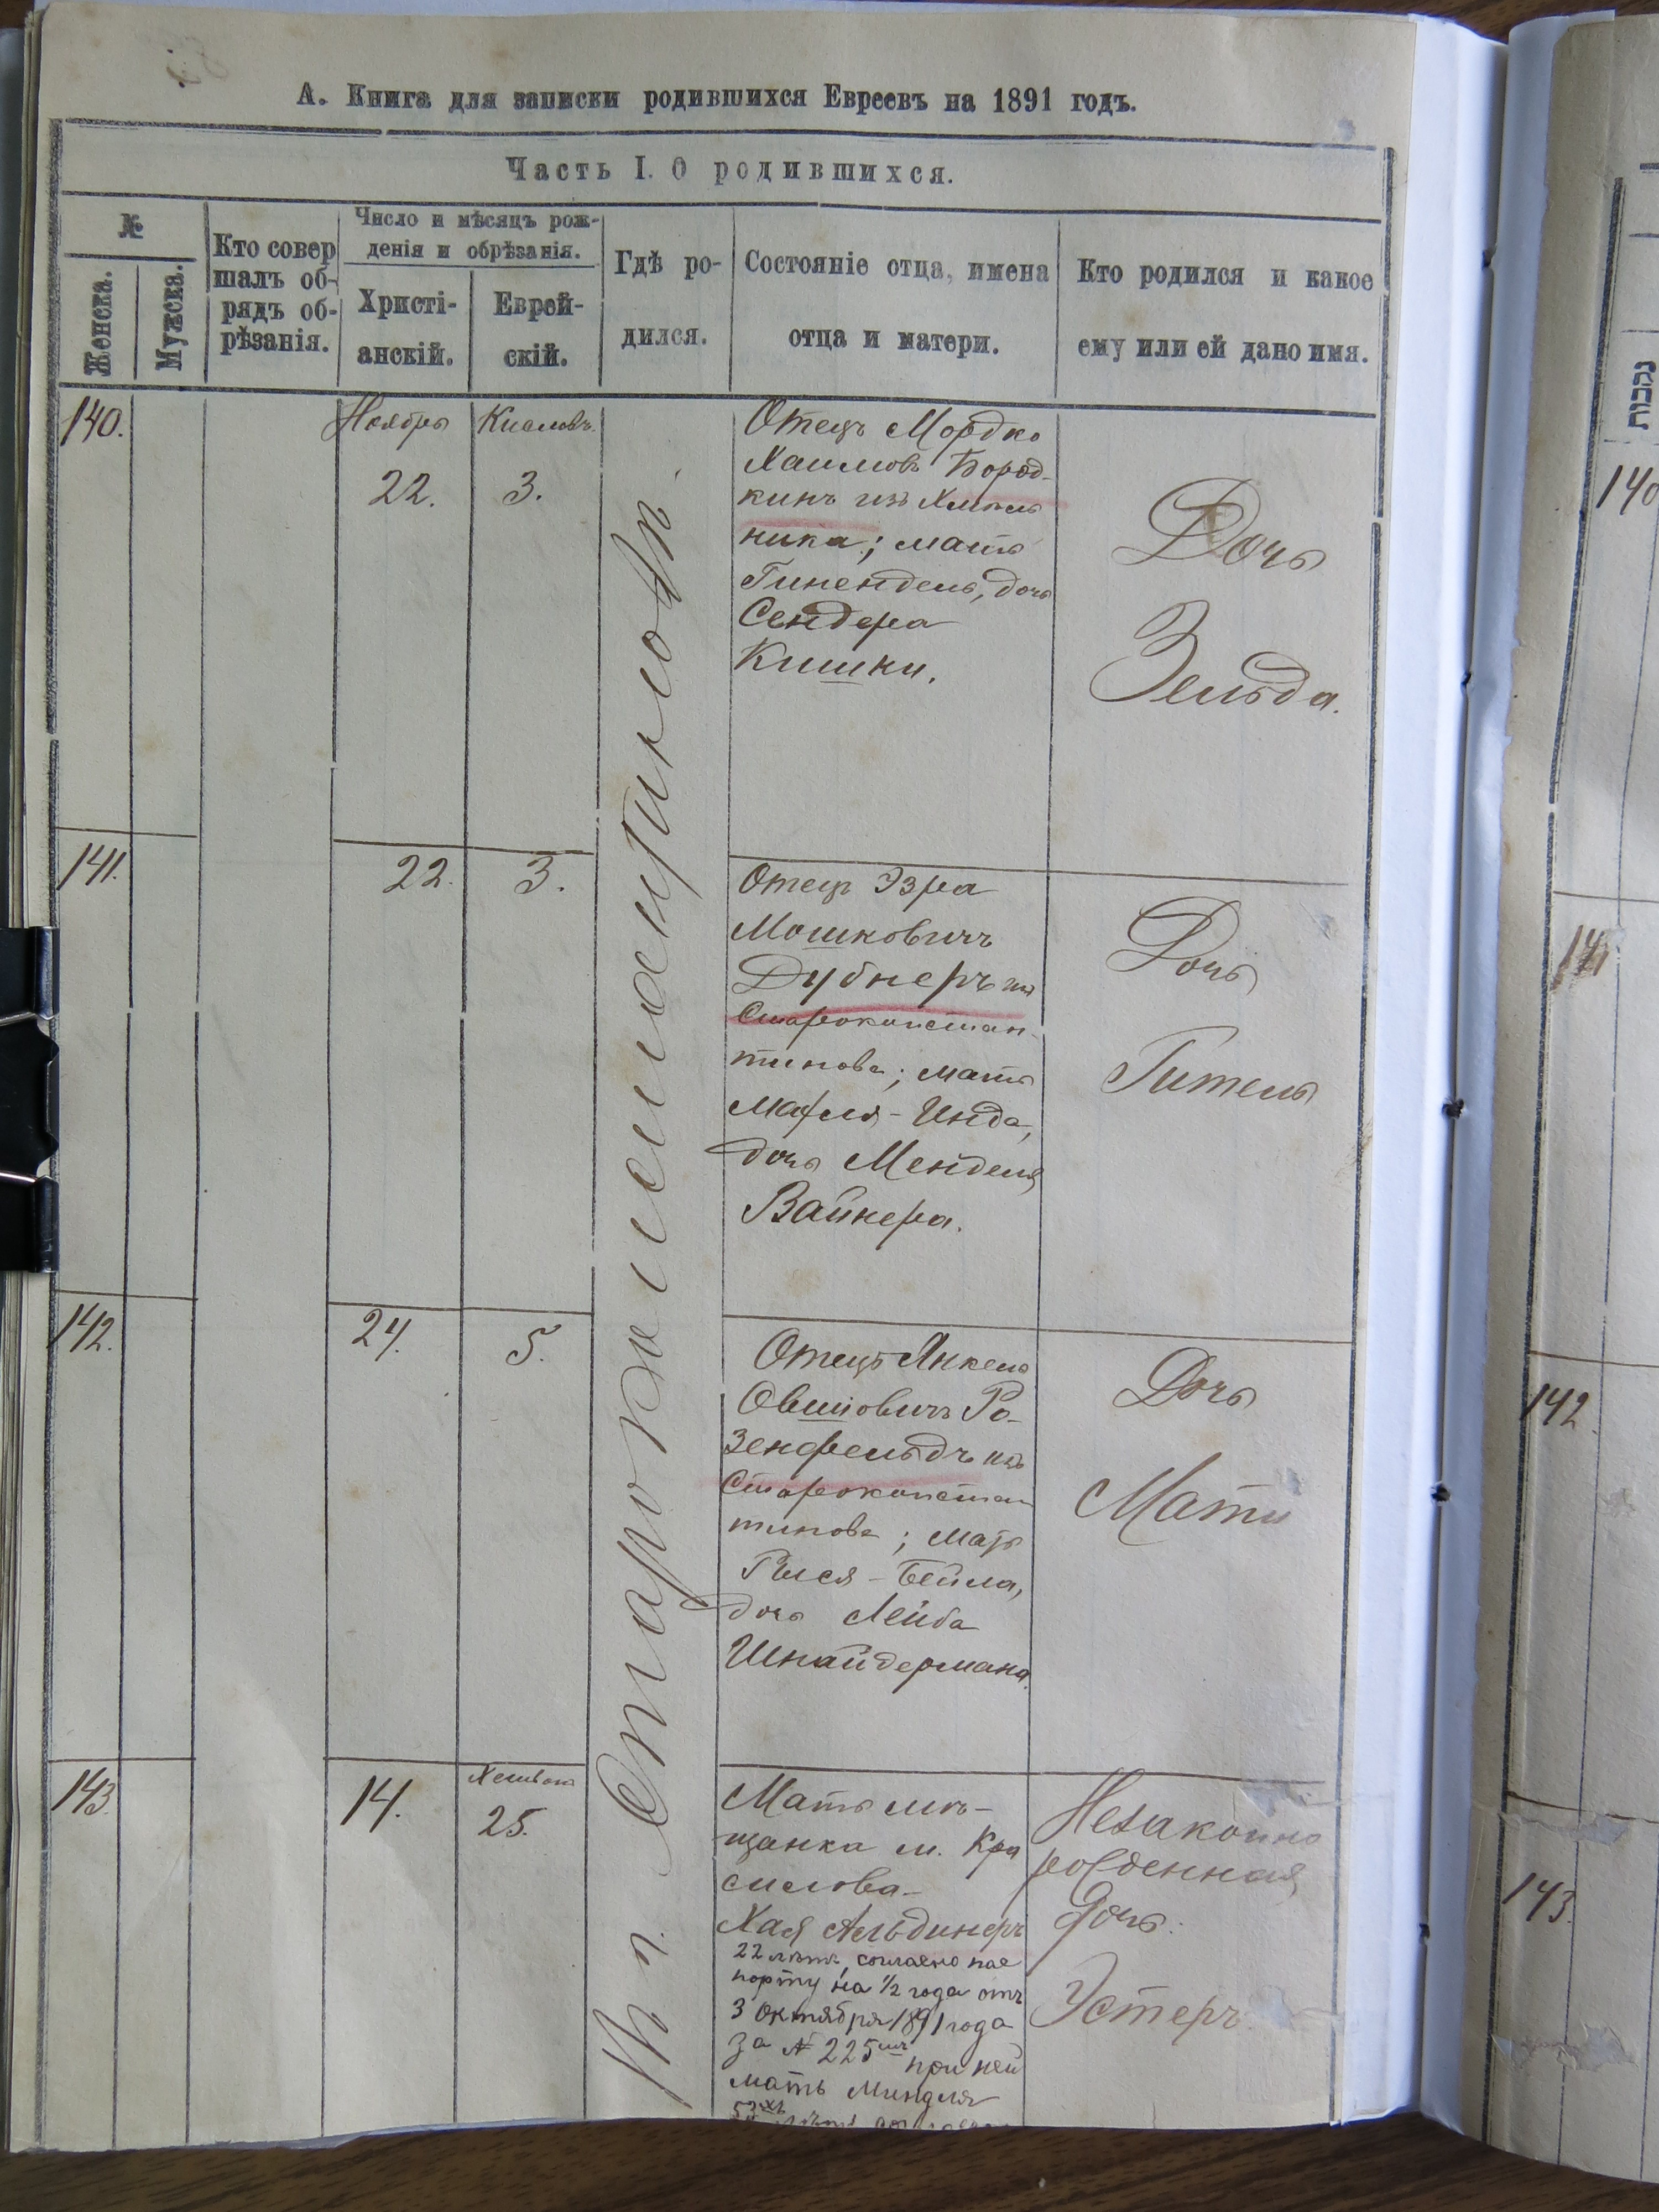 А. Книга для записки родившихся Евреевъ на 1891 годъ.
Часть I. О родившихся.
№
Женска.
Мужска.
Кто совер
шалъ об-
рядъ об-
рѣзанія.
Число и мѣсяцъ рож-
денія и обрѣзанія.
Христі-
анскій.
Еврей-
скій.
Гдѣ ро-
дился.
Состояніе отца, имена
отца и матери.
Кто родился и какое
ему или ей дано имя.
въ г. Староконстантиновѣ.
140.
Ноября
22.
Кислевъ
3.
Отецъ Мордко
Хаимовъ Бород-
кинъ изъ Хмель
ника; мать
Гинендель, дочь
Сендера
Кишки.
Дочь
Зельда.
141.
22.
3.
Отецъ Эзра
Мошковичъ
Дубнеръ изъ
Староконстан-
тинова; мать
Маля-Инда,
дочь Менделя
Вайнера.
Дочь
Гитель
142.
24.
5.
Отецъ Янкель
Овшіовичъ Ро-
зенфельдъ изъ
Староконстан
тинова; мать
Рися-Бейла,
дочь Лейба
Шнайдермана.
Дочь
Мати
143.
14.
Хешванъ
25.
Мать мѣ-
щанка м. Кра
силова
Хая Альдинеръ
22 лѣтъ, согласно пас
порту на 1/2 года отъ
3 октября 1891 года
за № 225 при ней
мать Миндля
53хъ лѣтъ
Незаконно
рожденная
дочь:
Эстеръ.
נקבות
140
141
142
143.